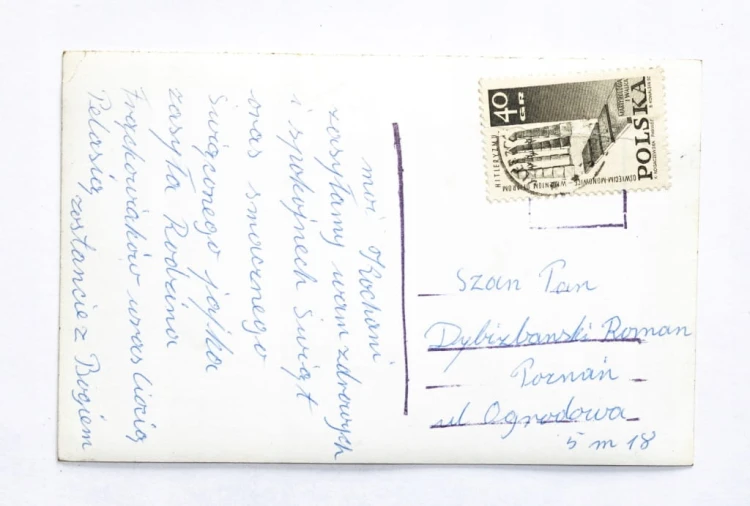 moi Kochani
zasyłamy wam zdrowych
i spokojnech Swiąt
oras smacznego
Swięconego jajka
zasyła Rodzina
Frąckowiaków wras Ciocią
Pelasią zostańcie z Bogiem
40
GR
POLSKA
HITLERYZMU
OŚWIĘCIM-MONOWICE
Szan Pan
Dybizbanski Roman
Poznań
ul Ogrodowa
5 m 18